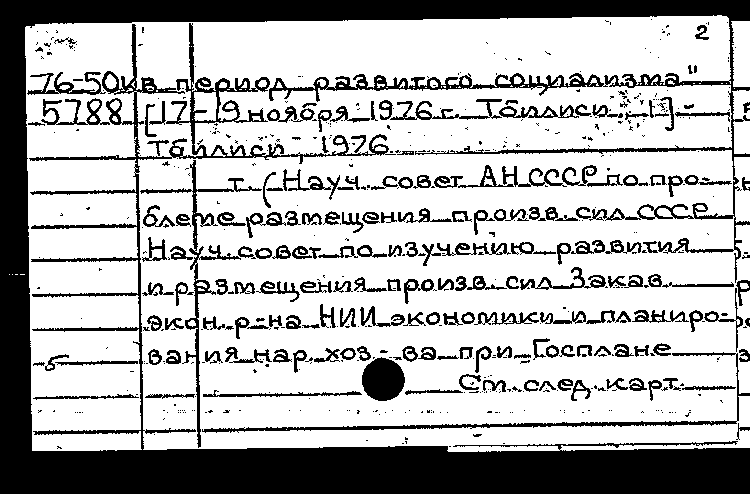 2
76-50кв период развитого социализма"
5788 [17-19 ноября 1976 г. Тбилиси]-
Тбилиси, 1976
т. (Науч. совет АН СССР по про-
блеме размещения произв. сил СССР
Науч. совет по изучению развития
и размещения произв. сил Закав.
экон. р-на НИИ экономики и планиро-
5 вания нар. хоз-ва при Госплане
См. след. карт.